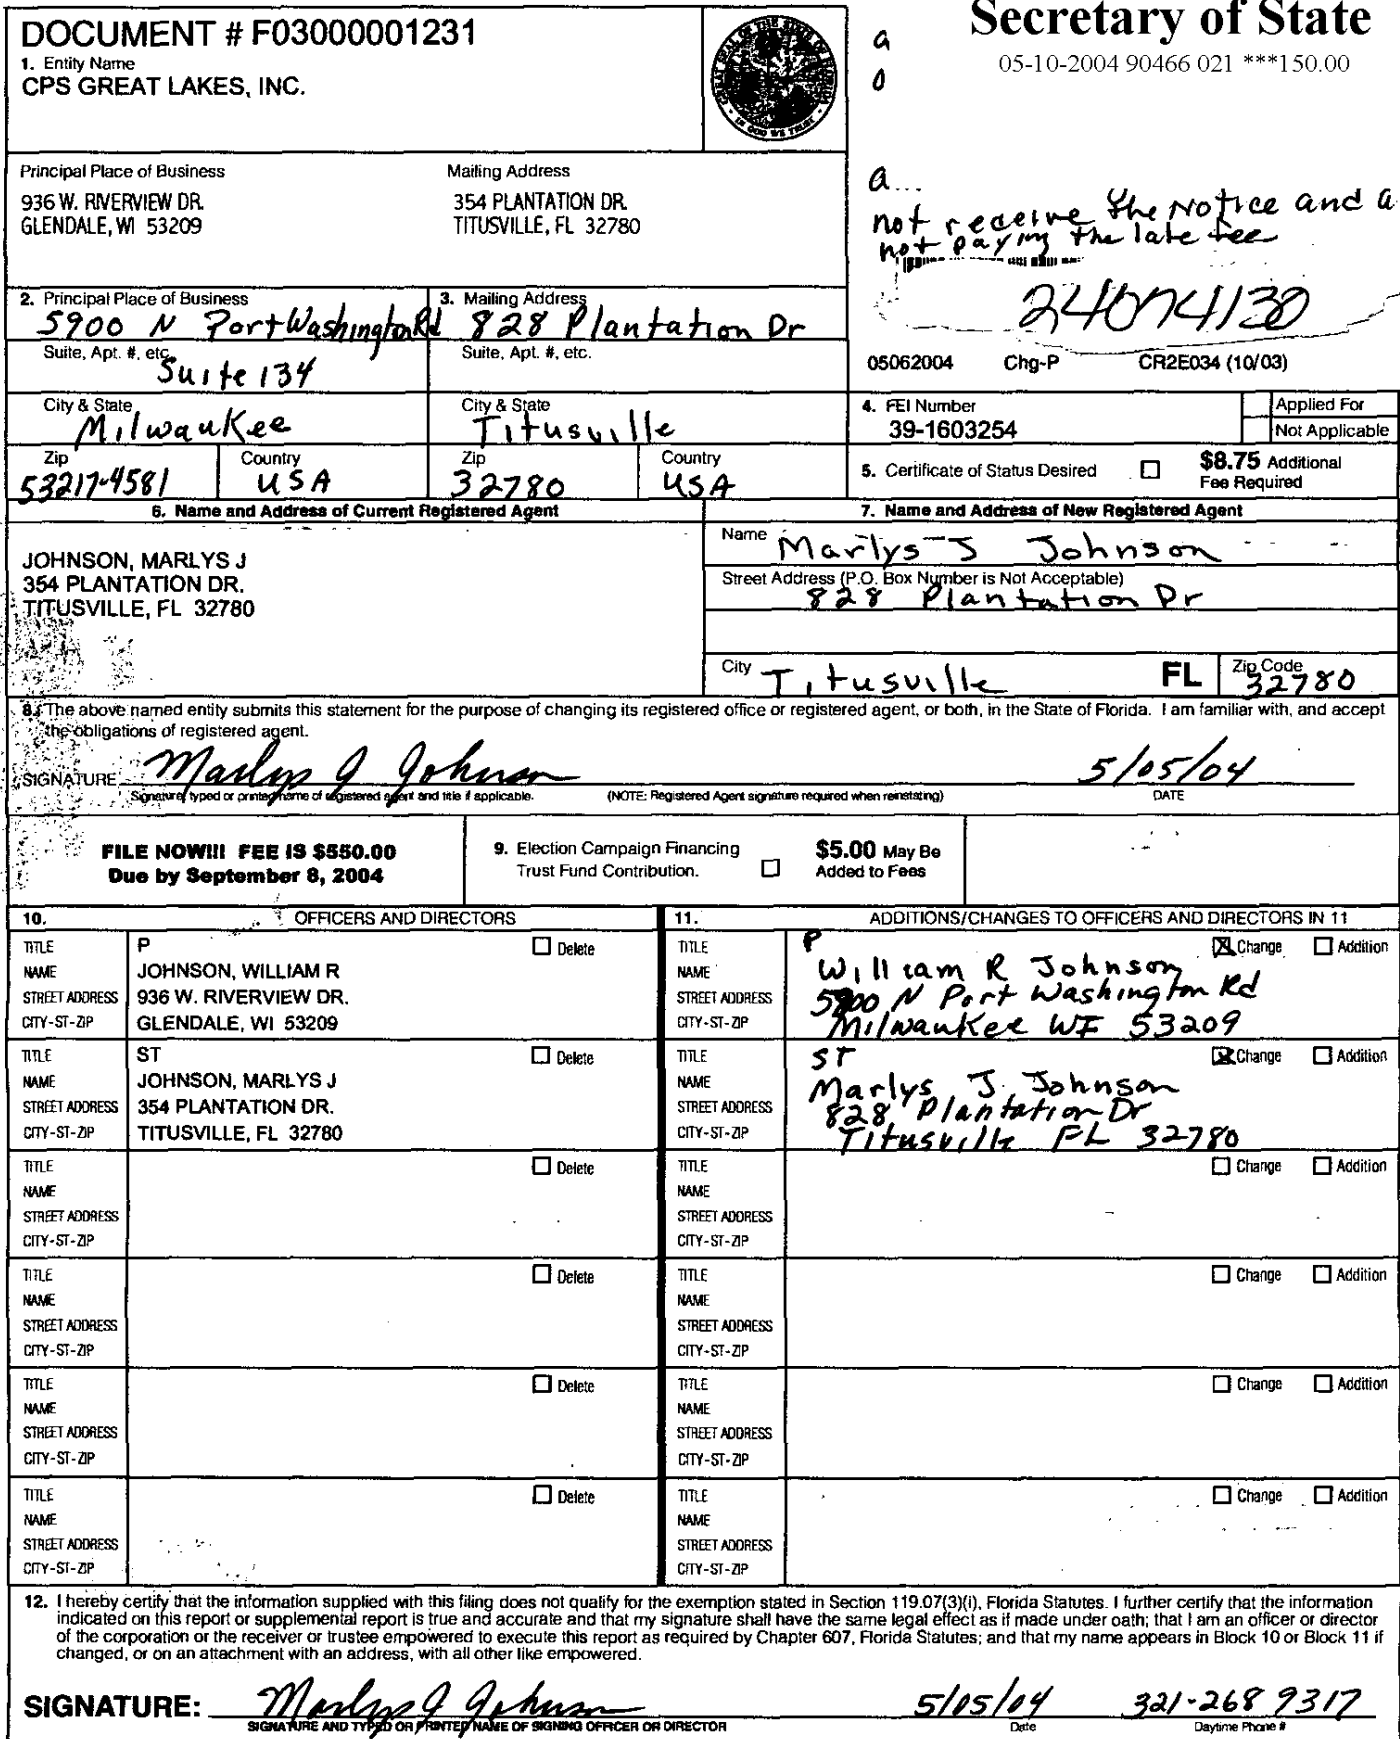 DOCUMENT # F03000001231
1. Entity Name
CPS GREAT LAKES, INC.
Secretary of State
05-10-2004 90466 021 ***150.00
Principal Place of Business
936 W. RIVERVIEW DR.
GLENDALE, WI 53209
Mailing Address
354 PLANTATION DR.
TITUSVILLE, FL 32780
a
not receive the Notice and a
not paying the late fee
24074130
2. Principal Place of Business
5900 N Port Washington Rd
3. Mailing Address
828 Plantation Dr
Suite, Apt. #, etc.
Suite 134
Suite, Apt. #, etc.
05062004 Chg-P CR2E034 (10/03)
City & State
Milwaukee
City & State
Titusville
4. FEI Number
39-1603254
Applied For
Not Applicable
Zip
53217-4581
Country
USA
Zip
32780
Country
USA
5. Certificate of Status Desired
$8.75 Additional
Fee Required
6. Name and Address of Current Registered Agent
JOHNSON, MARLYS J
354 PLANTATION DR.
TITUSVILLE, FL 32780
7. Name and Address of New Registered Agent
Name Marlys J Johnson
Street Address (P.O. Box Number is Not Acceptable)
828 Plantation Dr
City Titusville FL Zip Code 32780
8. The above named entity submits this statement for the purpose of changing its registered office or registered agent, or both, in the State of Florida. I am familiar with, and accept
the obligations of registered agent.
SIGNATURE Marlys J Johnson 5/05/04
Signature, typed or printed name of registered agent and title if applicable. (NOTE: Registered Agent signature required when reinstating) DATE
FILE NOW!!! FEE IS $550.00
Due by September 8, 2004
9. Election Campaign Financing
Trust Fund Contribution.
$5.00 May Be
Added to Fees
10. OFFICERS AND DIRECTORS
TITLE P Delete
NAME JOHNSON, WILLIAM R
STREET ADDRESS 936 W. RIVERVIEW DR.
CITY-ST-ZIP GLENDALE, WI 53209
TITLE ST Delete
NAME JOHNSON, MARLYS J
STREET ADDRESS 354 PLANTATION DR.
CITY-ST-ZIP TITUSVILLE, FL 32780
TITLE Delete
NAME
STREET ADDRESS
CITY-ST-ZIP
TITLE Delete
NAME
STREET ADDRESS
CITY-ST-ZIP
TITLE Delete
NAME
STREET ADDRESS
CITY-ST-ZIP
TITLE Delete
NAME
STREET ADDRESS
CITY-ST-ZIP
11. ADDITIONS/CHANGES TO OFFICERS AND DIRECTORS IN 11
TITLE P Change Addition
NAME William R Johnson
STREET ADDRESS 5900 N Port Washington Rd
CITY-ST-ZIP Milwaukee WI 53209
TITLE ST Change Addition
NAME Marlys J. Johnson
STREET ADDRESS 828 Plantation Dr
CITY-ST-ZIP Titusville FL 32780
TITLE Change Addition
NAME
STREET ADDRESS
CITY-ST-ZIP
TITLE Change Addition
NAME
STREET ADDRESS
CITY-ST-ZIP
TITLE Change Addition
NAME
STREET ADDRESS
CITY-ST-ZIP
TITLE Change Addition
NAME
STREET ADDRESS
CITY-ST-ZIP
12. I hereby certify that the information supplied with this filing does not qualify for the exemption stated in Section 119.07(3)(i), Florida Statutes. I further certify that the information
indicated on this report or supplemental report is true and accurate and that my signature shall have the same legal effect as if made under oath; that I am an officer or director
of the corporation or the receiver or trustee empowered to execute this report as required by Chapter 607, Florida Statutes; and that my name appears in Block 10 or Block 11 if
changed, or on an attachment with an address, with all other like empowered.
SIGNATURE: Marlys J Johnson 5/05/04 321-268 9317
SIGNATURE AND TYPED OR PRINTED NAME OF SIGNING OFFICER OR DIRECTOR Date Daytime Phone #